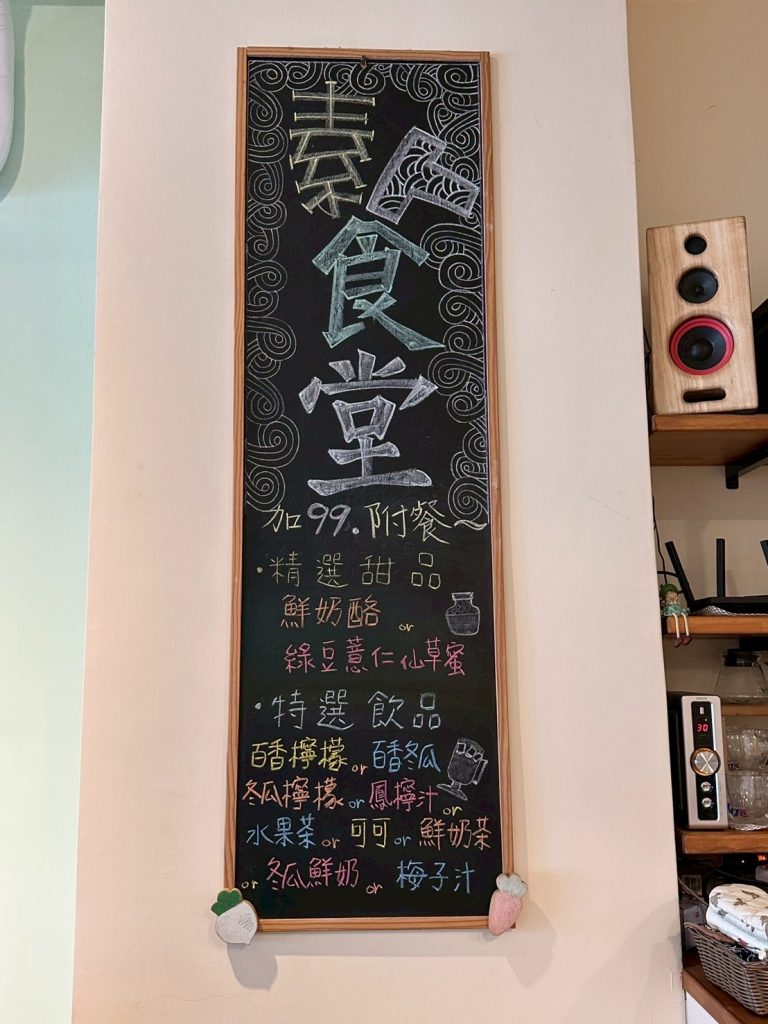 素
食
堂
加99.附餐～
·精選甜品
鮮奶酪 or
綠豆薏仁仙草蜜
·特選飲品
百香檸檬 or 百香冬瓜
冬瓜檸檬 or 鳳檸汁 or
水果茶 or 可可 or 鮮奶茶
or 冬瓜鮮奶 or 梅子汁
30